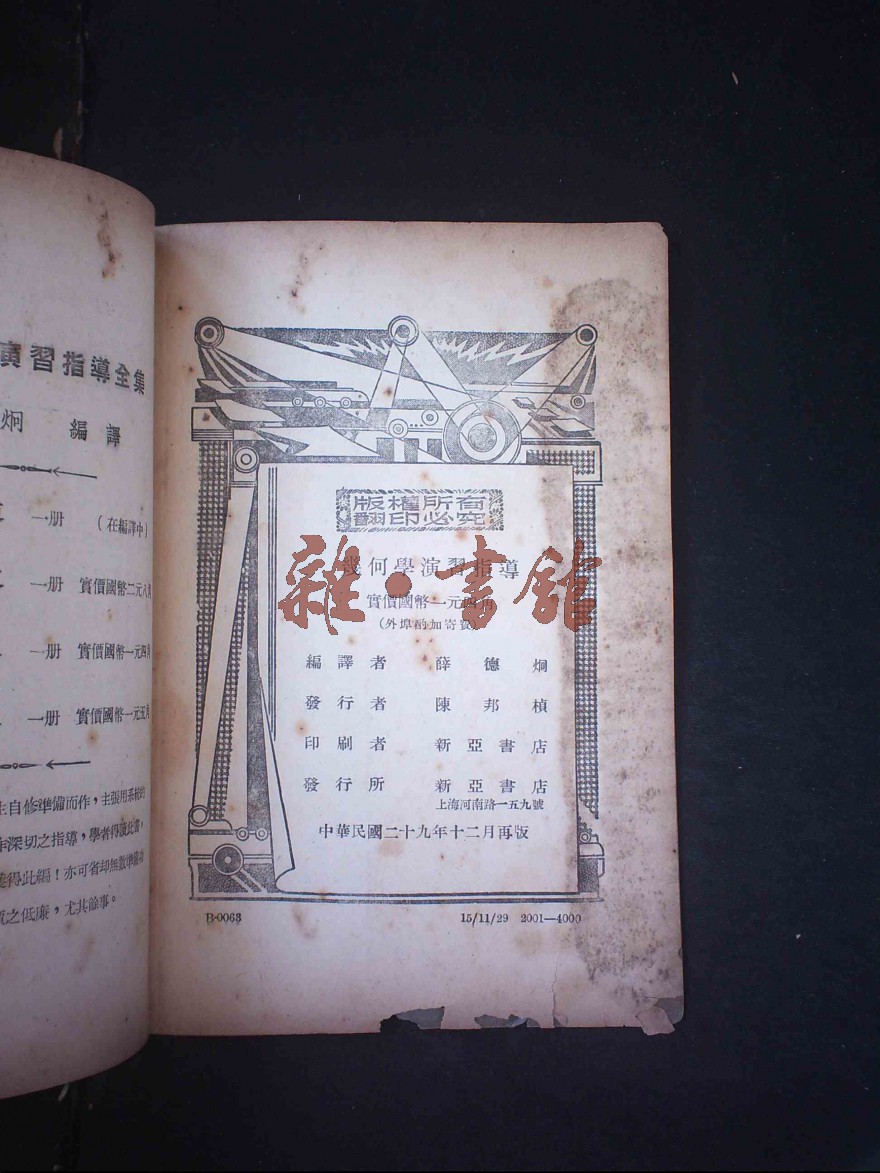 演習指導全集
炯 編譯
一册 （在編譯中）
一册 實價國幣二元八角
一册 實價國幣一元四角
一册 實價國幣一元五角
生自修準備而作，主張用系統的
作深切之指導，學者得讀此書，
得此編！亦可省却無數準備功
之低廉，尤其餘事。
版權所有
翻印必究
幾何學演習指導
實價國幣一元四角
（外埠酌加寄費）
編譯者 薛德炯
發行者 陳邦楨
印刷者 新亞書店
發行所 新亞書店
上海河南路一五九號
中華民國二十九年十二月再版
B-0063 15/11/29 2001—4000
雜·書館